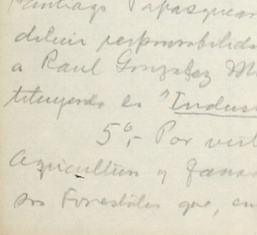 Santiago Papasquiaro
delicir responsabilida
a Raul Gonzalez M
tituyendo es "Indus
5o,- Por virt
Agricultura y Ganad
sos Forestales que, en